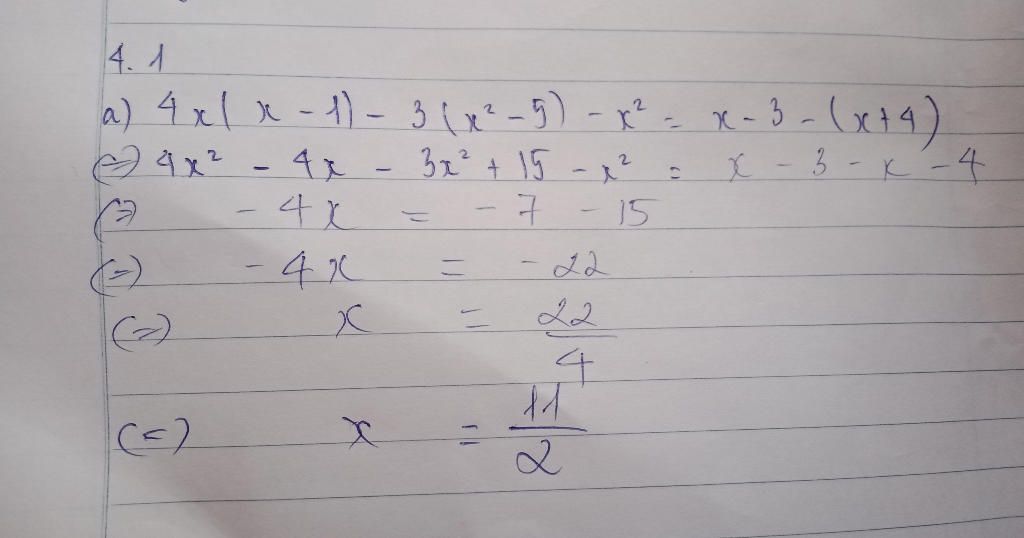 4. 1
a) 4x(x - 1) - 3(x² - 5) - x² = x - 3 - (x + 4)
(=) 4x² - 4x - 3x² + 15 - x² = x - 3 - x - 4
(=) - 4x = - 7 - 15
(=) - 4x = - 22
(=) x = 22/4
(=) x = 11/2